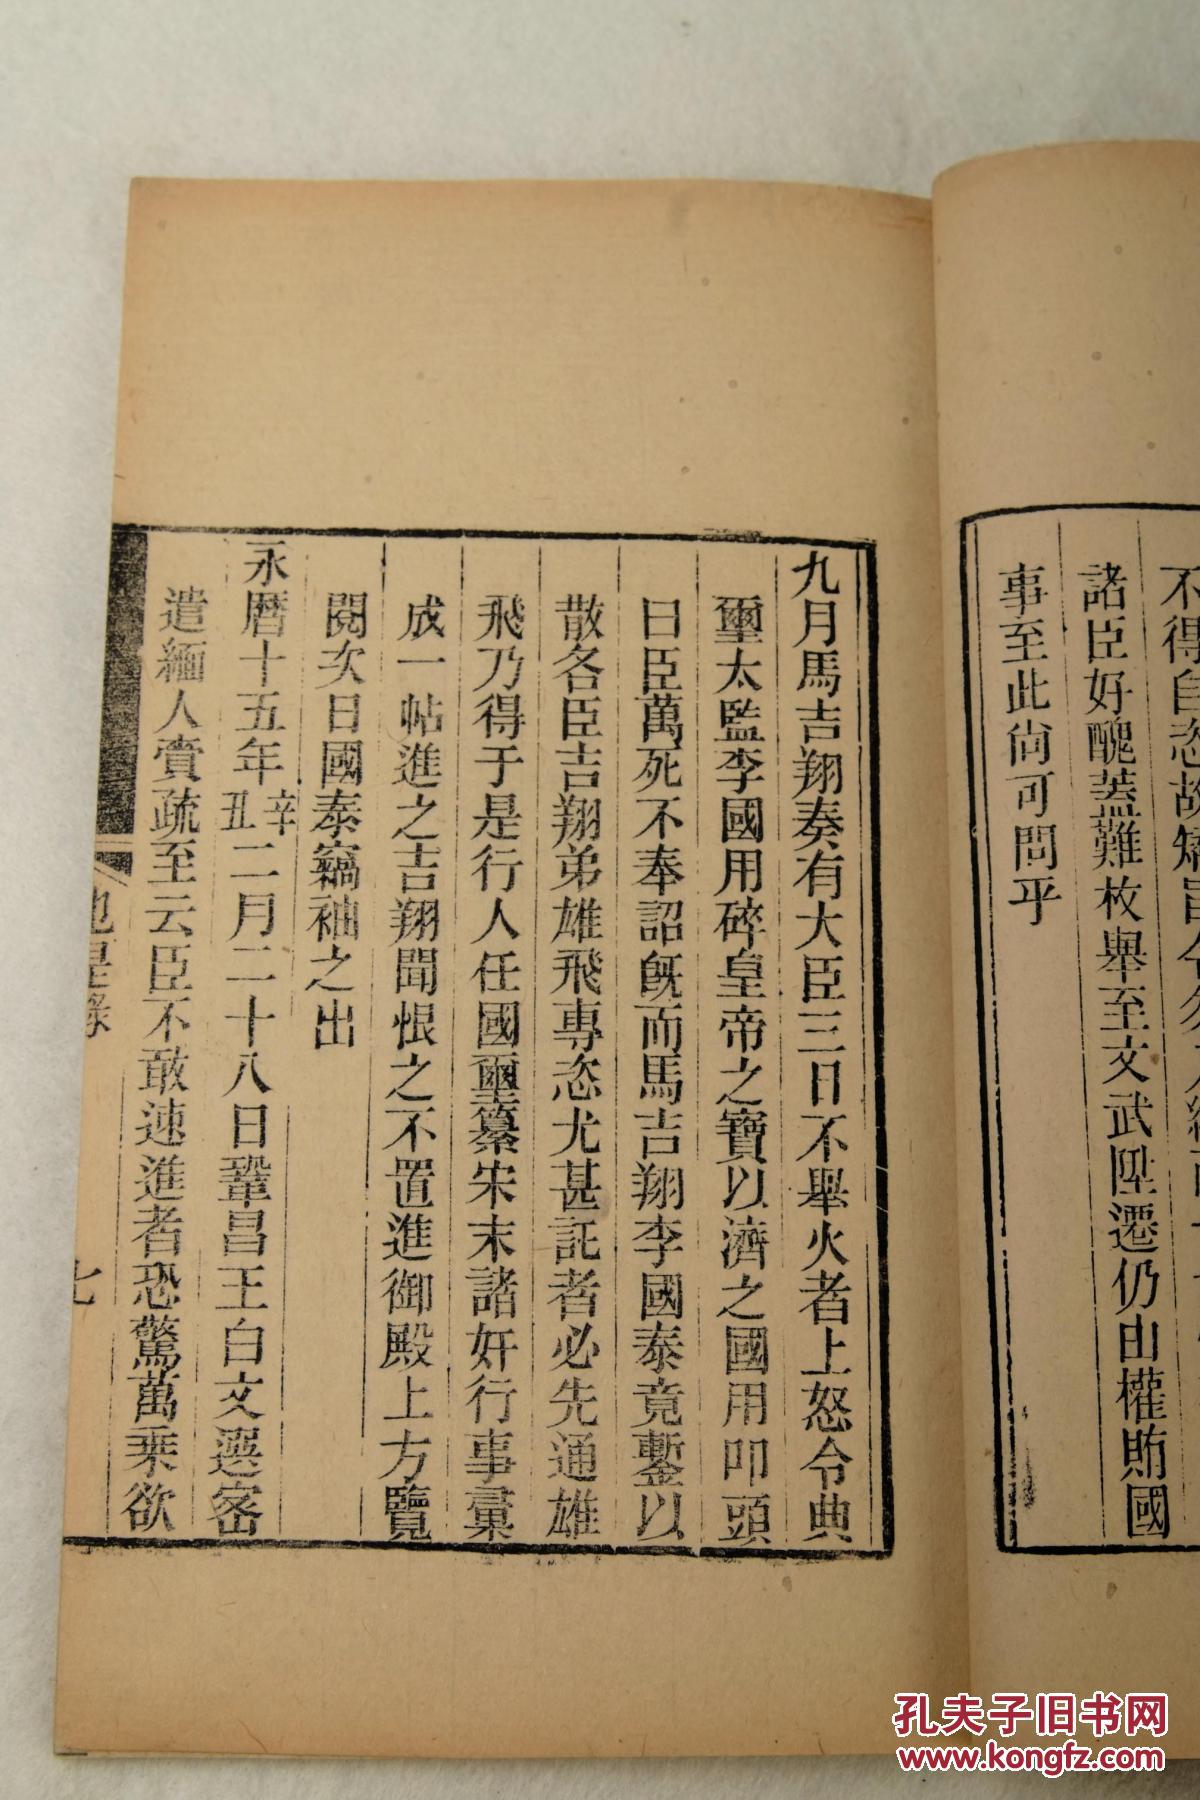 諸臣好醜蓋難枚舉至文武陞遷仍由權賄國
事至此尚可問乎
九月馬吉翔奏有大臣三日不舉火者上怒令典
璽太監李國用碎皇帝之寶以濟之國用叩頭
曰臣萬死不奉詔旣而馬吉翔李國泰竟鏨以
散各臣吉翔弟雄飛專恣尤甚託者必先通雄
飛乃得于是行人任國璽纂宋末諸奸行事彙
成一帖進之吉翔聞恨之不置進御殿上方覽
閱次日國泰竊袖之出
永曆十五年辛丑二月二十八日鞏昌王白文選密
遣緬人賫疏至云臣不敢速進者恐驚萬乗欲
也是錄
七
孔夫子旧书网
www.kongfz.com